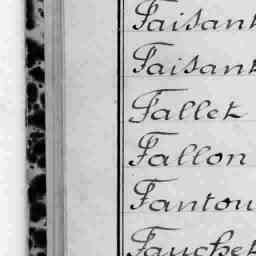 Faisant
Faisant
Fallet
Fallon
Fantou
Fauchet